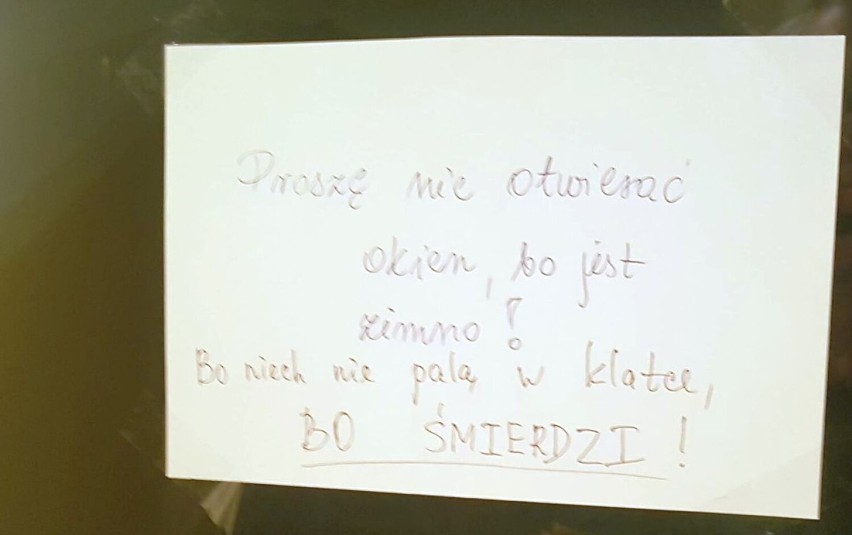 Proszę nie otwierać
okien, bo jest
zimno!
Bo niech nie palą w klatce,
BO ŚMIERDZI!